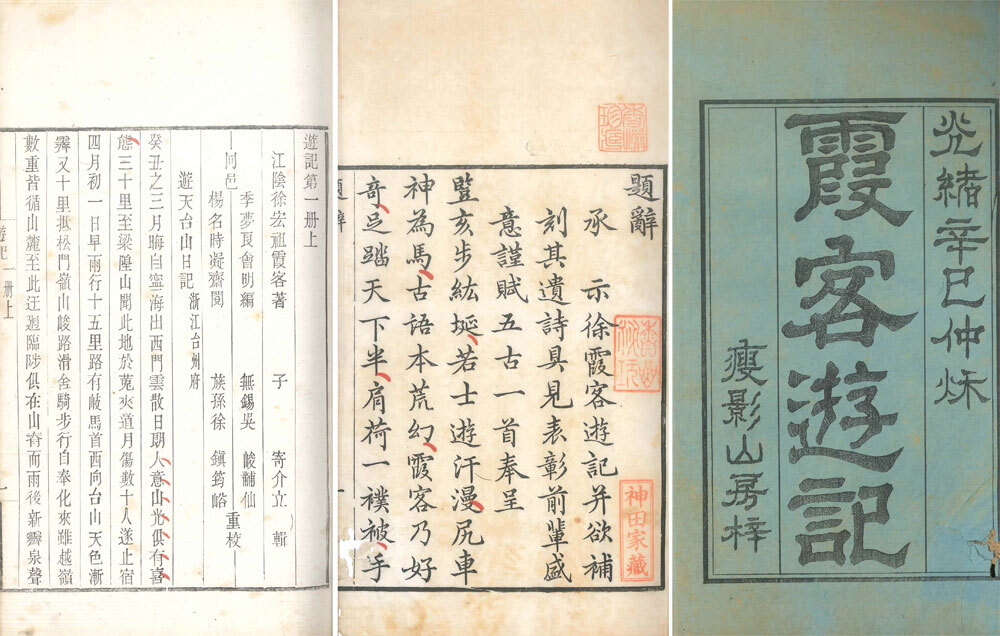 光緒辛巳仲秌
霞客遊記
瘦影山房梓
題辭
承 示徐霞客遊記并欲補
刻其遺詩具見表彰前輩盛
意謹賦五古一首奉呈
豎亥步紘埏若士遊汗漫尻車
神為馬古語本荒幻霞客乃好
奇足踏天下半肩荷一襆被手
題辭 一
神田家藏
遊記第一册上
江陰徐宏祖霞客著 子 寄介立 輯
季夢良會明編 無錫吳 峻黼仙
同邑 重校
楊名時凝齋閱 族孫徐 鎮筠峪
遊天台山日記 浙江台州府
癸丑之三月晦自寧海出西門雲散日朗人意山光俱有喜
態三十里至梁隍山聞此地於菟夾道月傷數十人遂止宿
四月初一日早雨行十五里路有岐馬首西向台山天色漸
霽又十里抵松門嶺山峻路滑舍騎步行自奉化來雖越嶺
數重皆循山麓至此迂廻臨陟俱在山脊而雨後新霽泉聲
遊記一册上 一